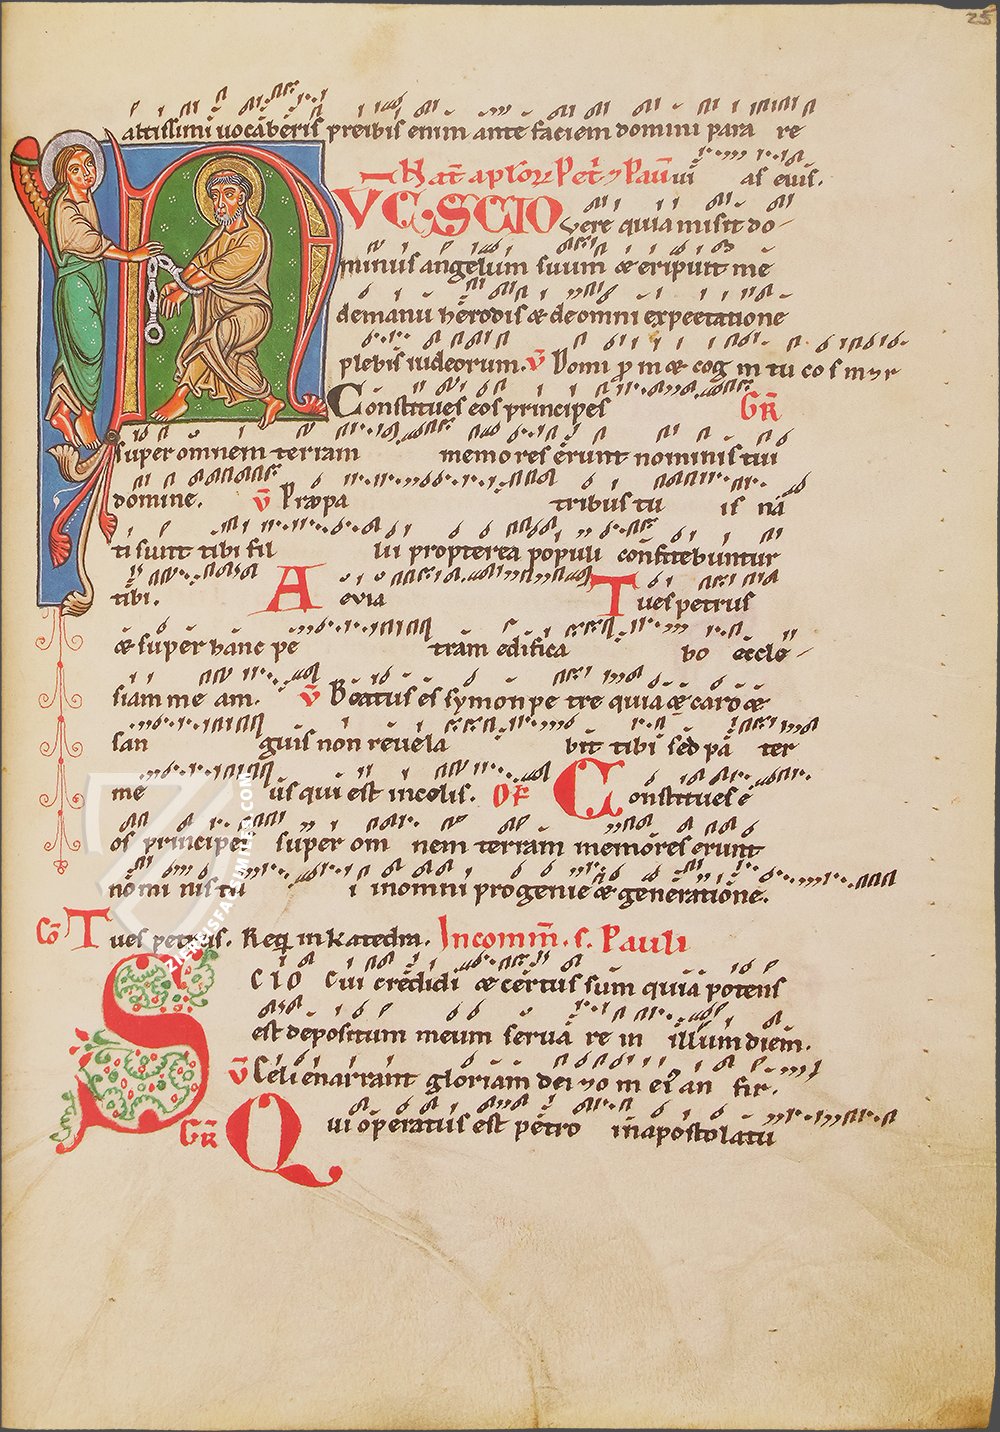 25
altissimi vocaberis preibis enim ante faciem domini para re
Nat aploꝝ Pet ⁊ Pauli vi as eius.
NVNC SCIO vere quia misit do-
minus angelum suum & eripuit me
de manu herodis & de omni expectatione
plebis iudeorum. V Domi p m & cog m tu cos m ⁊ r
Constitues eos principes GR
super omnem terram memores erunt nominis tui
domine. V Pro pa tribus tu is na
ti sunt tibi fil lii propterea populi confitebuntur
tibi. A evia Tu es petrus
& super hanc pe tram edifica bo eccle-
siam me am. V Beatus es symon pe tre quia & caro &
san guis non revela bit tibi sed pa ter
me us qui est in celis. OF Constitues e
os principes super om nem terram memores erunt
nomi nis tu i in omni progenie & generatione.
Co Tu es petrus. Req in Katedra. In comm. s. Pauli
SCIO cui credidi & certus sum quia potens
est depositum meum serva re in illum diem.
V Celi enarrant gloriam dei ⁊ o m ei an fir.
GR Qui operatus est petro in apostolatu
ZIEREISFACSIMILES.COM